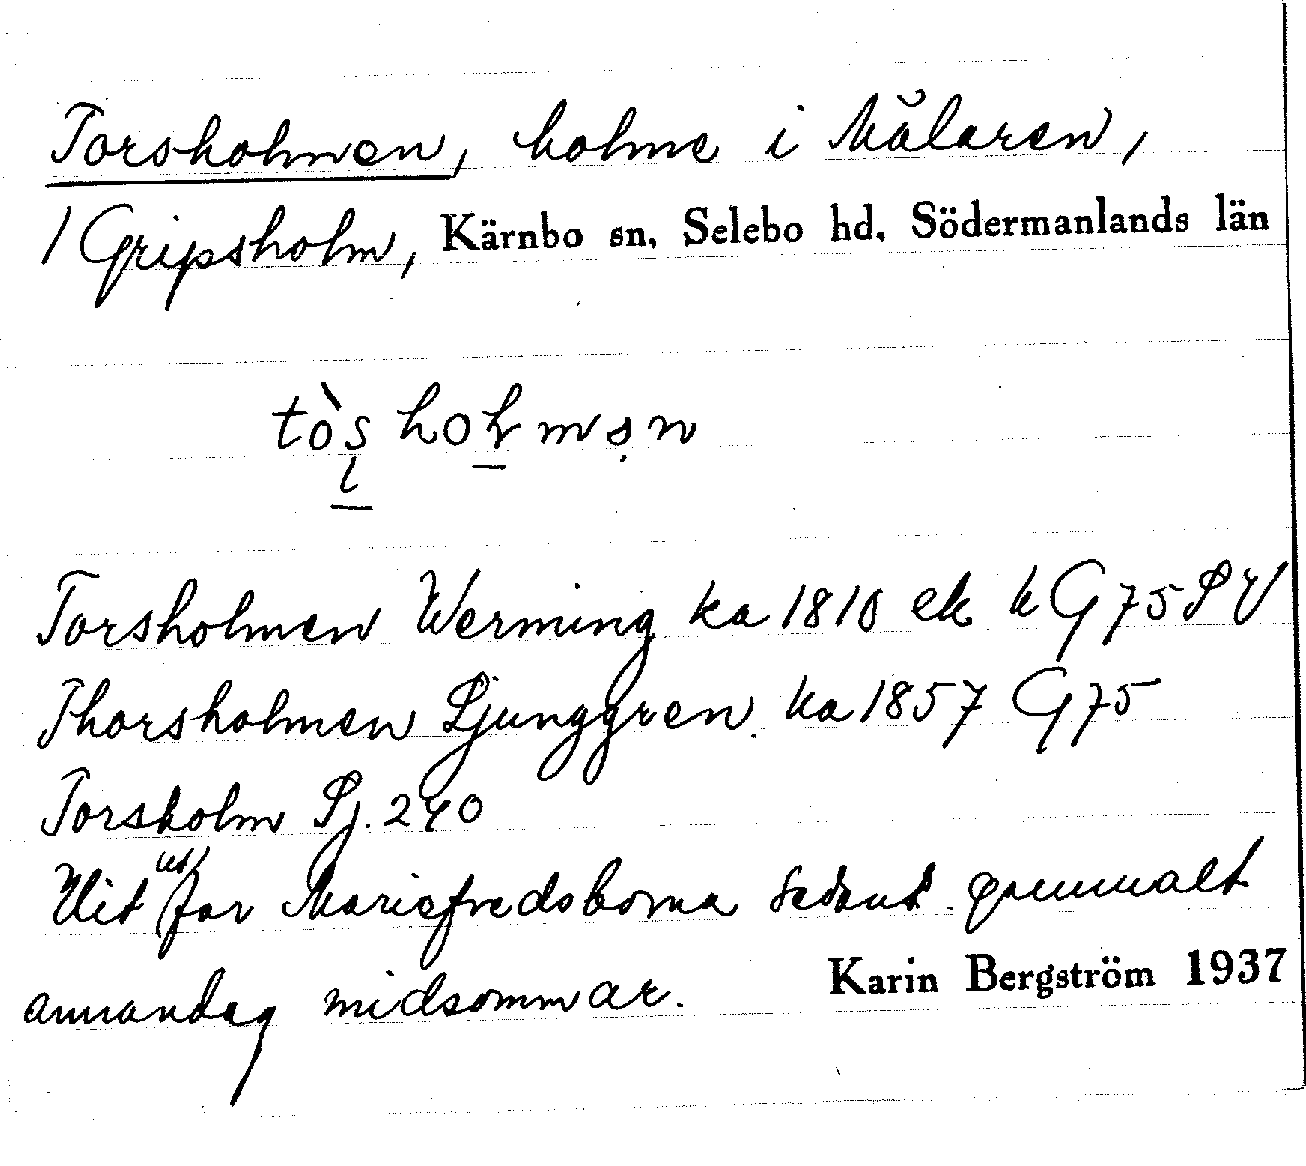 Torsholmen, holme i Mälaren,
/ Gripsholm, Kärnbo sn, Selebo hd, Södermanlands län
tòs̩ holmən
Torsholmen Werming ka 1810 ek k G75
Thorsholmen Ljunggren ka 1857 G75
Torsholm Lj. 240
Hit ut far Mariefredsborna sedant gammalt
annandag midsommar. Karin Bergström 1937